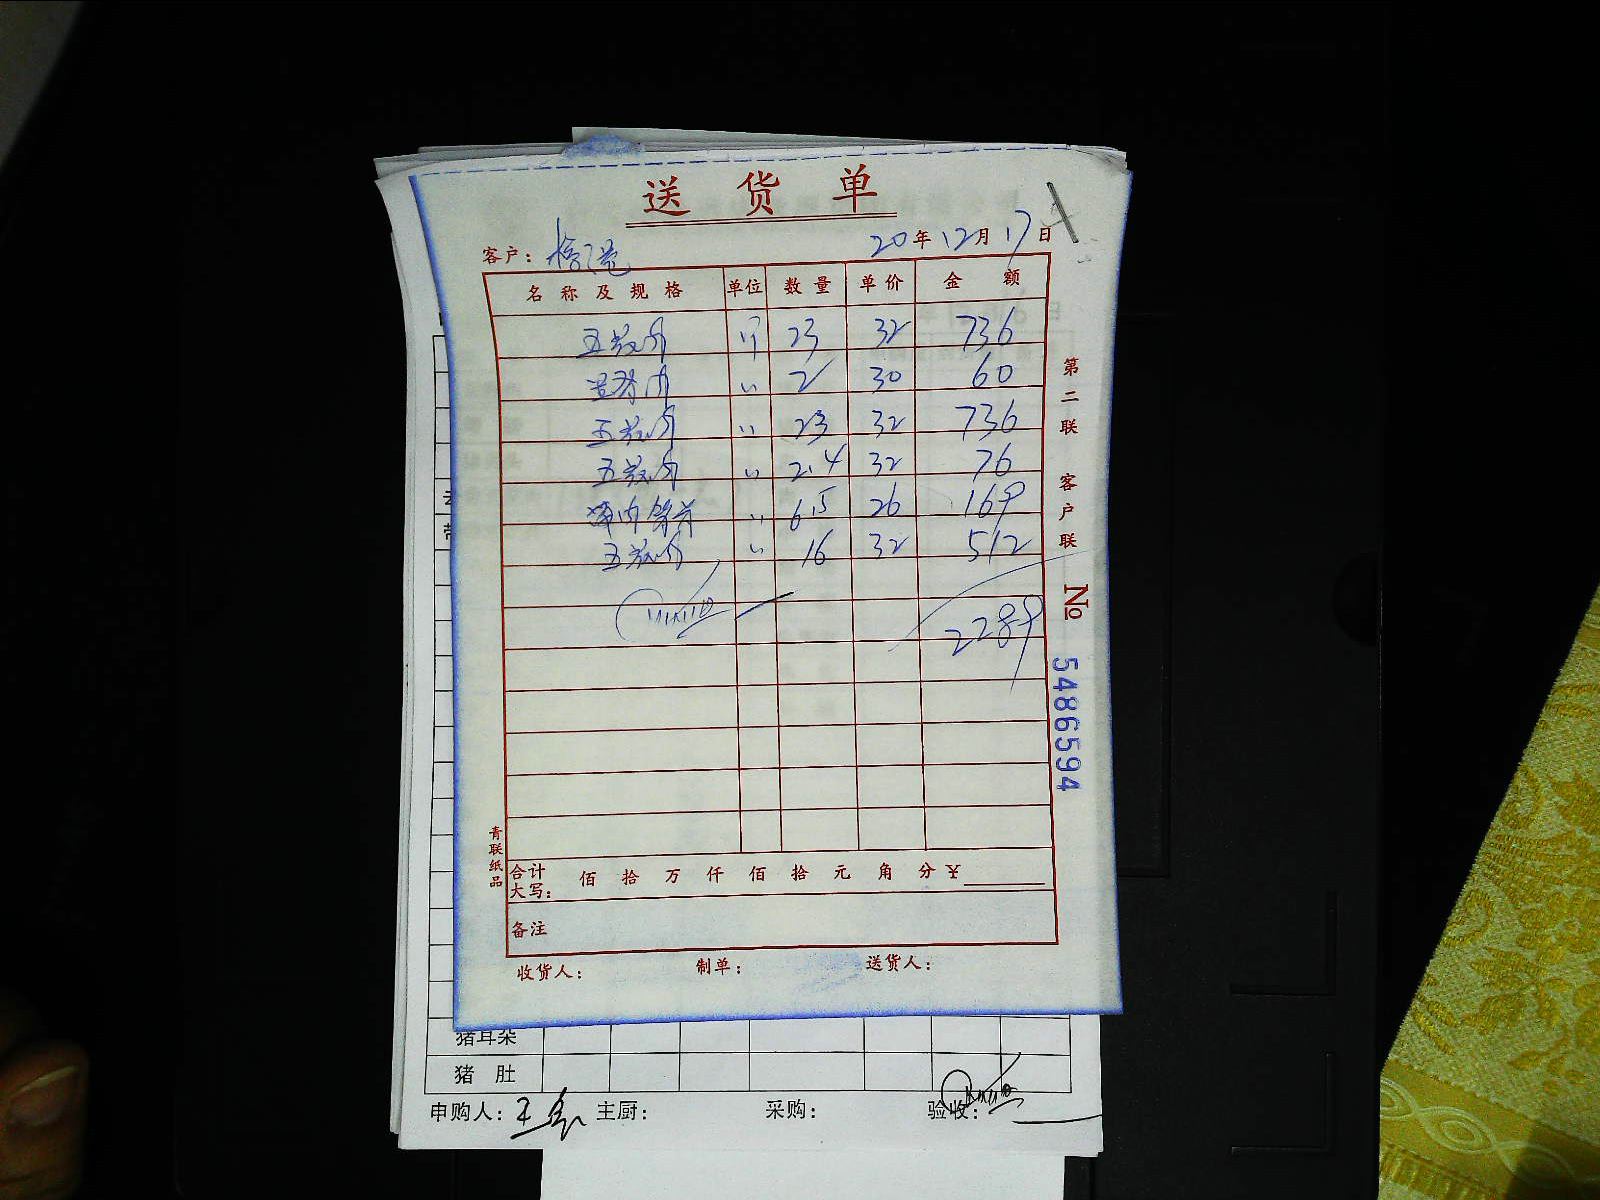 送货单
客户： 20年12月17日
名称及规格 单位 数量 单价 金额
五花肉 斤 23 32 736
〃 2 30 60
五花肉 〃 23 32 736
五花肉 〃 2.4 32 76
〃 6.5 26 169
五花肉 〃 16 32 512
2289
第二联 客户联
№ 5486594
青联纸品
合计大写： 佰 拾 万 仟 佰 拾 元 角 分 ¥
备注
收货人： 制单： 送货人：
猪耳朵
猪肚
申购人： 主厨： 采购： 验收：